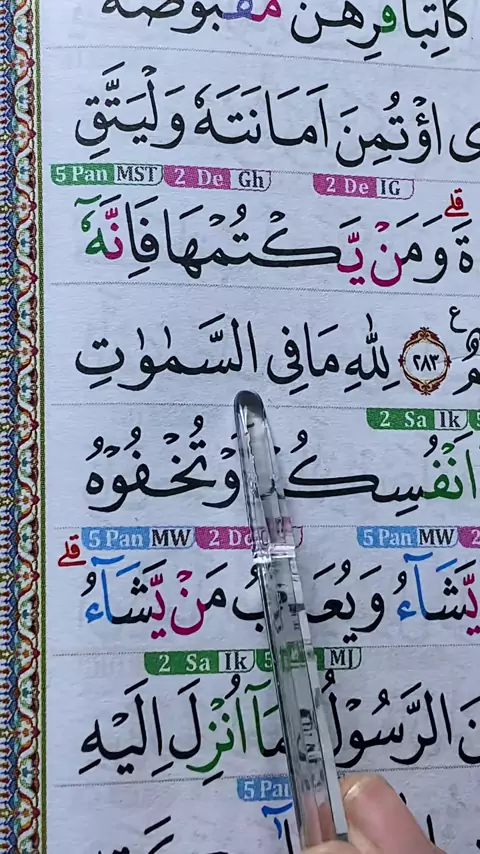 كَاتِبًا فَرِهٰنٌ مَّقْبُوضَةٌ
اؤْتُمِنَ اَمَانَتَهٗ وَلْيَتَّقِ
5 Pan MST 2 De Gh 2 De IG
قلے
ةَ وَمَنْ يَّكْتُمْهَا فَاِنَّهٗٓ
ع
٢٨٣ لِلّٰهِ مَا فِى السَّمٰوٰتِ
2 Sa Ik
اَنْفُسِكُمْ اَوْ تُخْفُوْهُ
5 Pan MW 5 Pan MW
قلے
يَّشَآءُ وَيُعَذِّبُ مَنْ يَّشَآءُ
2 Sa Ik MJ
الرَّسُوْلُ بِمَآ اُنْزِلَ اِلَيْهِ